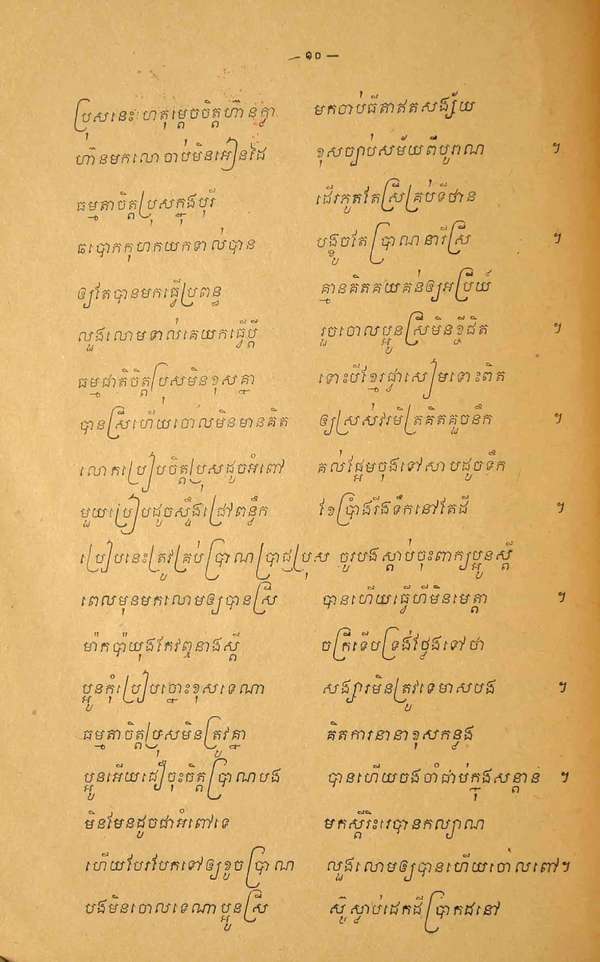 — ១០ —
ប្រុសនេះហេតុម្ដេចចិត្តហ៊ានក្លា មកចាប់ធីតាឥតសង្ស័យ
ហ៊ានមកលោចាប់មិនអៀនដៃ ខុសច្បាប់សម័យពីបូរាណ ។
ធម្មតាចិត្តប្រុសក្នុងបុរី ដើរកួតតែស្រីគ្រប់ទីថាន
ធបោកកុហកយកទាល់បាន បង្ខូចតែប្រាណនារីស្រី ។
ឲ្យតែបានមកធ្វើប្រពន្ធ គ្មានគិតគយគន់ឲ្យអប្រីយ៍
លួងលោមទាល់គេយកធ្វើប្ដី រួចចោលប្អូនស្រីមិនខ្ចីជិត ។
ធម្មជាតិចិត្តប្រុសមិនខុសគ្នា ទោះបីខ្មែរជ្វាសៀមទោះពិត
បានស្រីហើយចោលមិនមានគិត ឲ្យស្រស់វរមិត្រគិតគួចនឹក ។
លោកប្រៀបចិត្តប្រុសដូចអំពៅ គល់ផ្អែមចុងទៅសាបដូចទឹក
មួយប្រៀបដូចស្ទឹងជ្រៅពន្លឹក ខែប្រាំងរីងទឹកនៅតែដី ។
ប្រៀបនេះត្រូវគ្រប់ប្រាណប្រាជ្ញប្រុស ចូរបងស្ដាប់ចុះពាក្យប្អូនស្ដី
ពេលមុនមកលោមឲ្យបានស្រី បានហើយធ្វើហីមិនមេត្តា ។
ម៉ាកប៉ាយុងកែវឮនាងស្ដី ចក្រីទើបទ្រង់ថ្លែងទៅថា
ប្អូនកុំប្រៀបច្នោះខុសទេណា សង្សារមិនត្រូវទេមាសបង ។
ធម្មតាចិត្តប្រុសមិនត្រូវគ្នា គិតការនានាខុសកន្លង
ប្អូនអើយជឿចុះចិត្តប្រាណបង បានហើយចងចាំជាប់ក្នុងសន្ដាន ។
មិនមែនដូចជាអំពៅទេ មកស្ដីរិះរេបានកល្យាណ
ហើយបែរបែកទៅឲ្យខូចប្រាណ លួងលោមឲ្យបានហើយចោលពៅ។
បងមិនចោលទេណាប្អូនស្រី ស៊ូស្លាប់ដេកដីប្រាកដនៅ